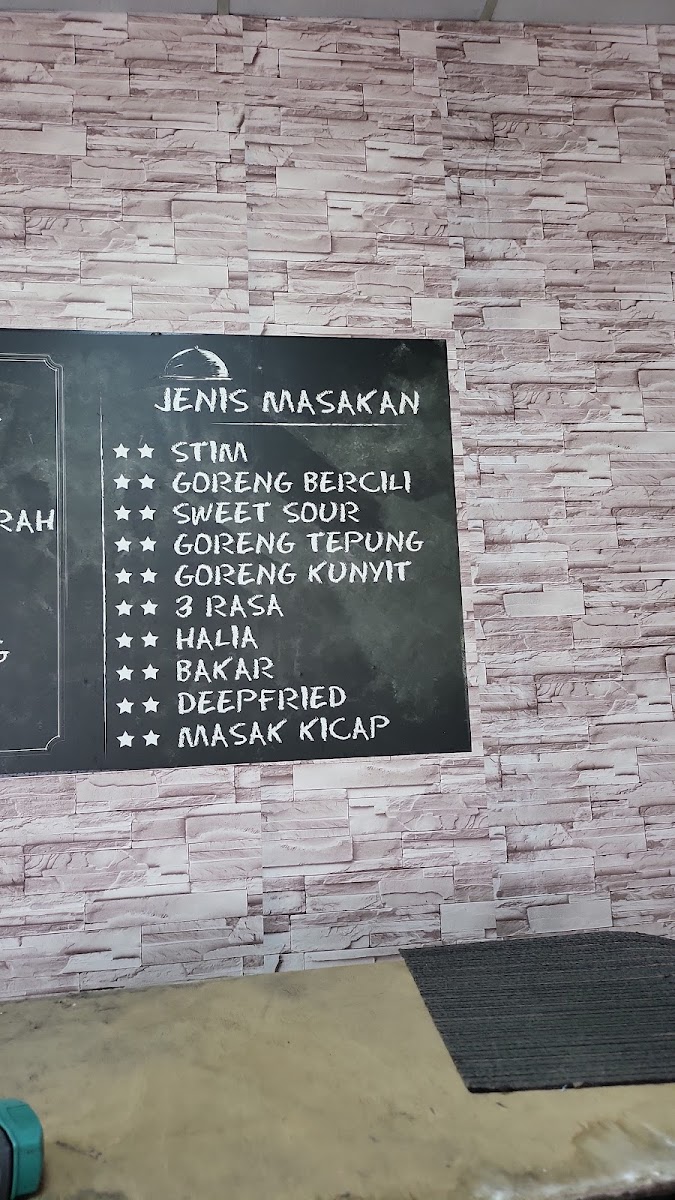 JENIS MASAKAN
STIM
GORENG BERCILI
SWEET SOUR
GORENG TEPUNG
GORENG KUNYIT
3 RASA
HALIA
BAKAR
DEEPFRIED
MASAK KICAP
RAH